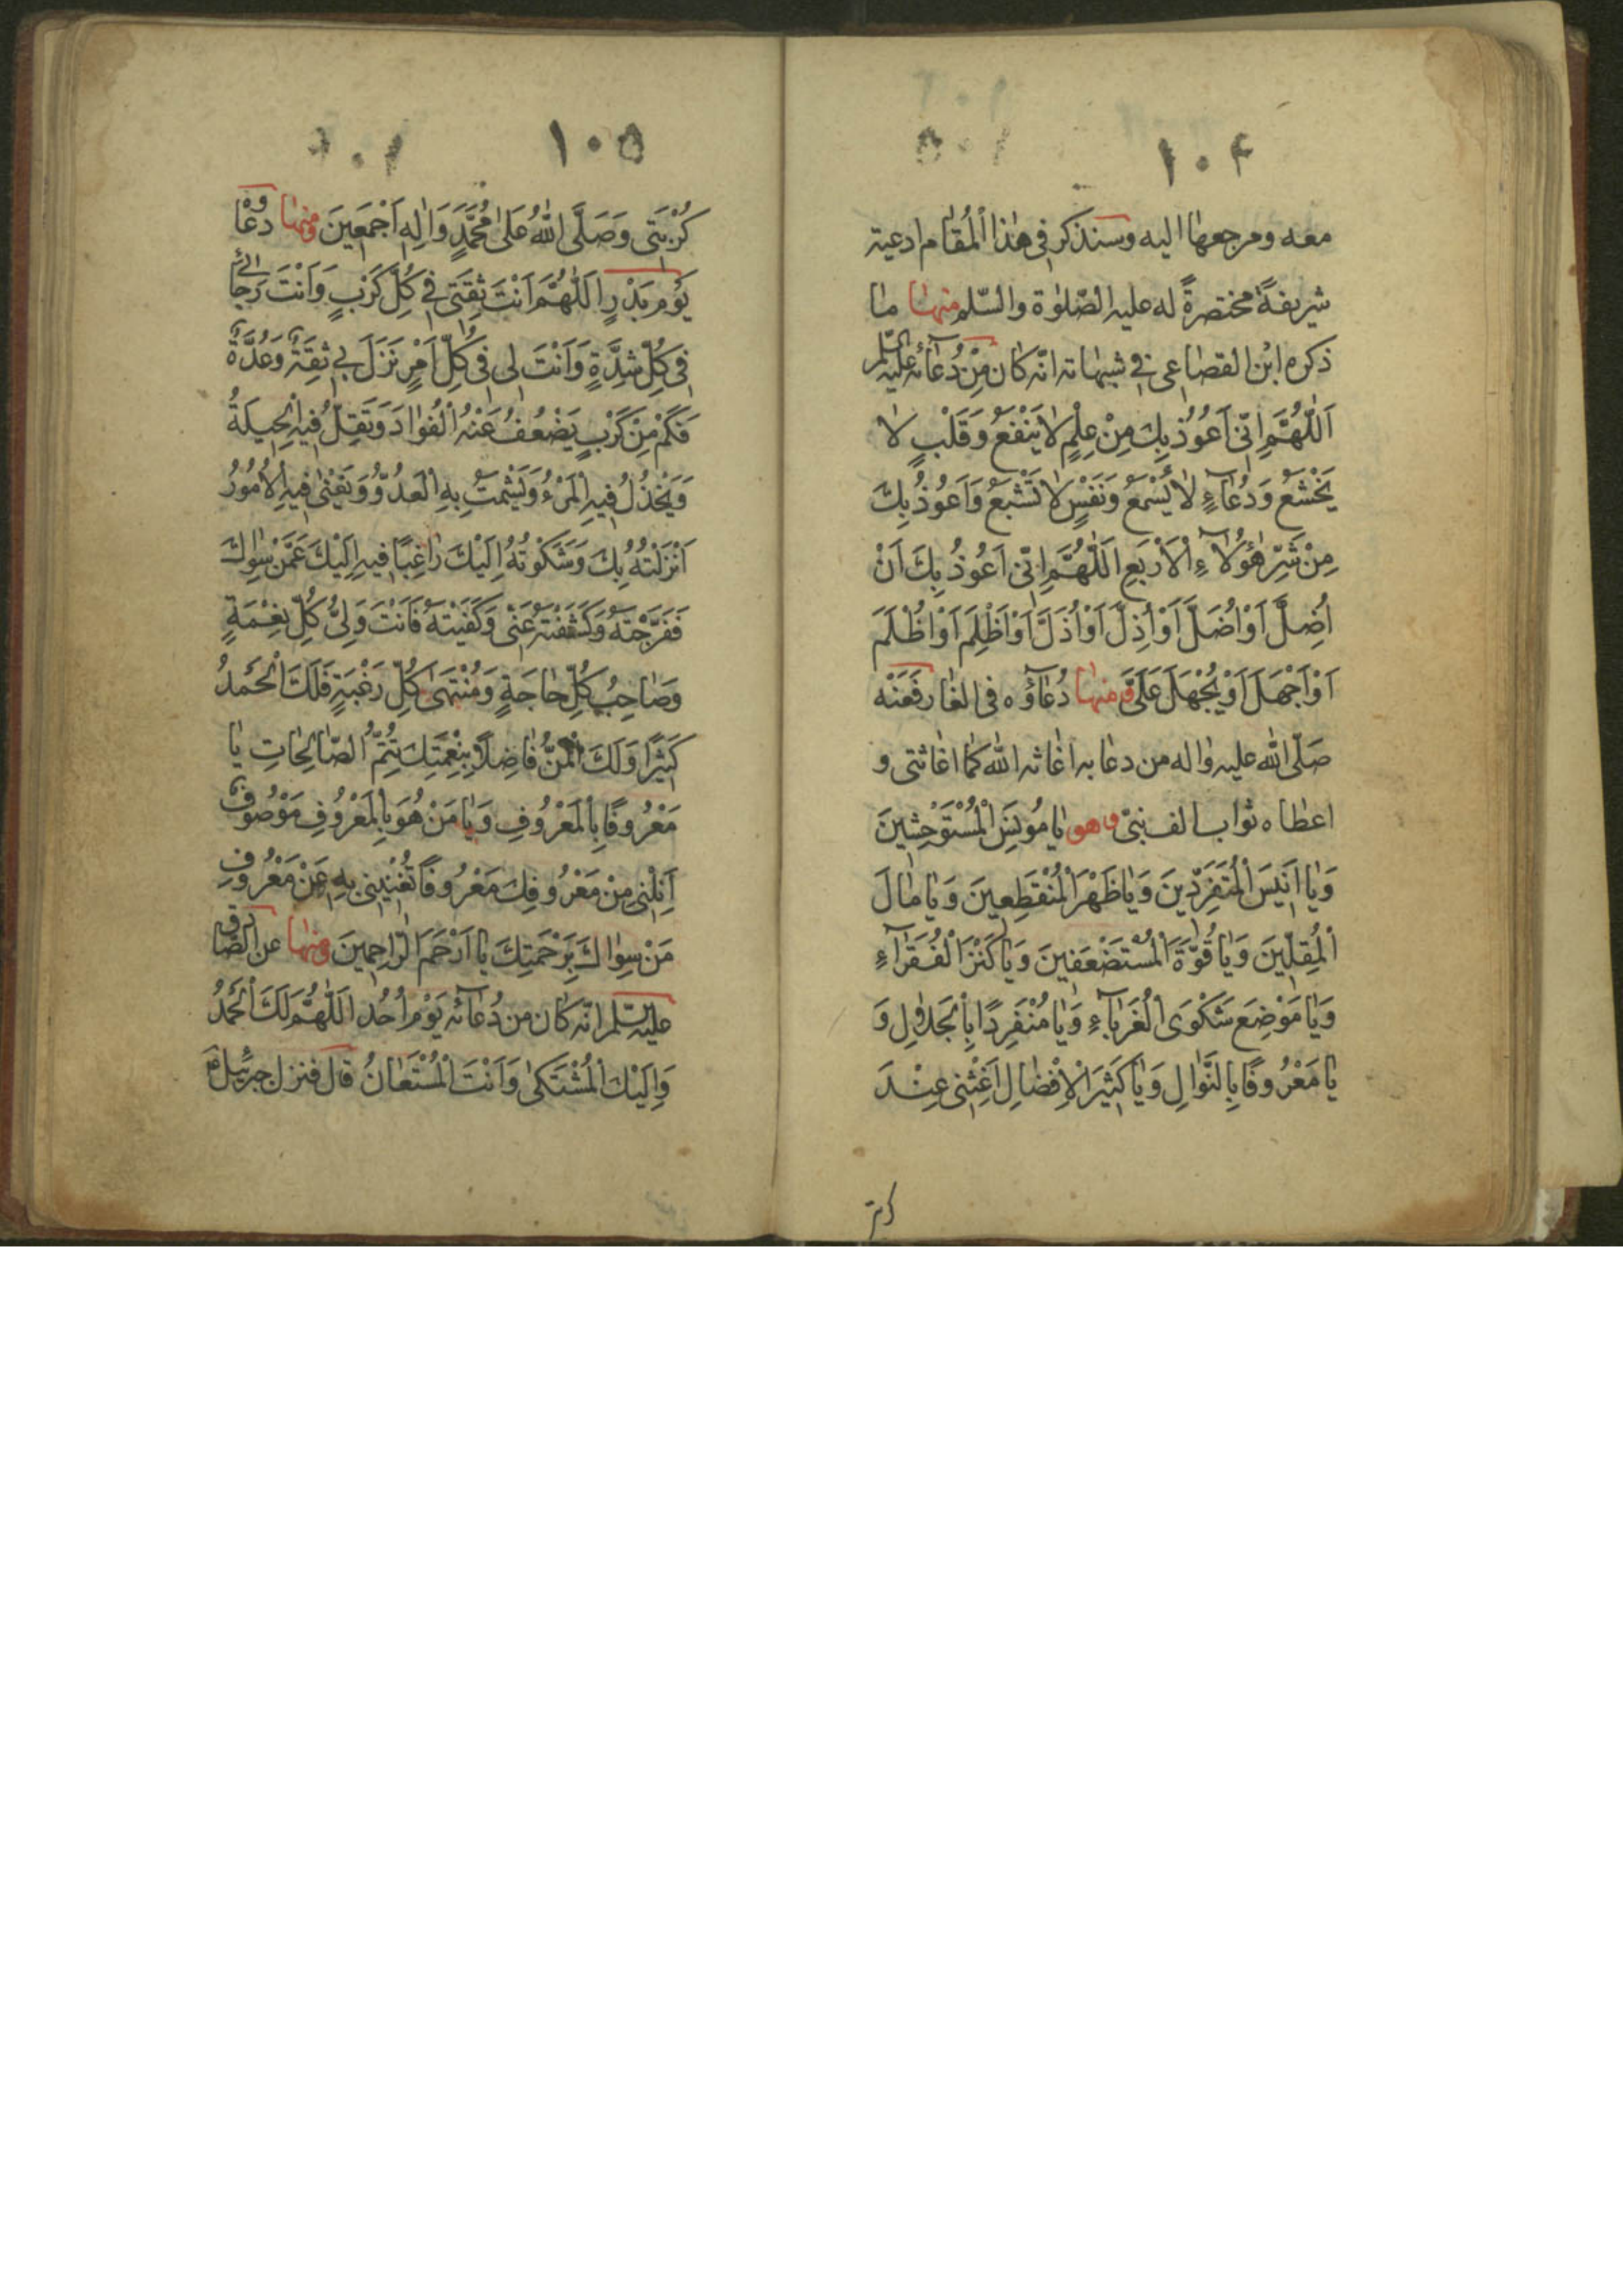 ١٠٤
معه ومرجعها اليه وسنذكر فى هذا المقام ادعية
شريفةً مختصرةً له عليه الصّلوٰة والسّلم منها ما
ذكره ابْن القضاعى فى شهابه انّه كان مِنْ دُعآئه عليه السّلم
اَللّٰهُمَّ اِنّى اَعُوذُ بِكَ مِنْ عِلْمٍ لا يَنْفَعُ وَقَلْبٍ لا
يَخْشَعُ وَدُعآءٍ لا يُسْمَعُ وَنَفْسٍ لا تَشْبَعُ وَاَعُوذُ بِكَ
مِنْ شَرِّ هٰؤُلآءِ الْاَرْبَعِ اَللّٰهُمَّ اِنّى اَعُوذُ بِكَ اَنْ
اُضِلَّ اَوْ اُضَلَّ اَوْ اُذِلَّ اَوْ اُذَلَّ اَوْ اَظْلِمَ اَوْ اُظْلَمَ
اَوْ اَجْهَلَ اَوْ يُجْهَلَ عَلَىَّ ومنها دُعآؤه فى الغار فَعَنْه
صَلّى الله عليه واله من دعا به اغاثه الله كما اغاثنى و
اعطاه ثواب الف نبىّ وهو يا مُونِسَ الْمُسْتَوْحِشِينَ
وَيا اَنيسَ الْمُتَفَرِّدينَ وَيا ظَهْرَ الْمُنْقَطِعينَ وَيا مالَ
الْمُقِلّينَ وَيا قُوَّةَ الْمُسْتَضْعَفينَ وَيا كَنْزَ الْفُقَرآءِ
وَيا مَوْضِعَ شَكْوَى الْغُرَبآءِ وَيا مُنْفَرِدًا بِالْجَلالِ وَ
يا مَعْرُوفًا بِالنَّوالِ وَيا كَثيرَ الْاِفْضالِ اَغِثْنى عِنْدَ
كربتى
١٠٥
كُرْبَتى وَصَلَّى اللهُ عَلىٰ مُحَمَّدٍ وَالِهِ اَجْمَعينَ ومنها دعاؤه
يَوْم بَدْرٍ اَللّٰهُمَّ اَنْتَ ثِقَتى فى كُلِّ كَرْبٍ وَاَنْتَ رَجائى
فى كُلِّ شِدَّةٍ وَاَنْتَ لى فى كُلِّ اَمْرٍ نَزَلَ بى ثِقَةٌ وَعُدَّةٌ
فَكَمْ مِنْ كَرْبٍ يَضْعُفُ عَنْهُ الْفُؤادُ وَتَقِلُّ فيهِ الْحيلَةُ
وَيَخْذُلُ فيهِ الْمَرْءُ وَيَشْمَتُ بِهِ الْعَدُوُّ وَتَعْنى فيهِ الْاُمُورُ
اَنْزَلْتُهُ بِكَ وَشَكَوْتُهُ اِلَيْكَ راغِبًا فيهِ اِلَيْكَ عَمَّنْ سِواكَ
فَفَرَّجْتَهُ وَكَشَفْتَهُ عَنّى وَكَفَيْتَهُ فَاَنْتَ وَلِىُّ كُلِّ نِعْمَةٍ
وَصاحِبُ كُلِّ حاجَةٍ وَمُنْتَهىٰ كُلِّ رَغْبَةٍ فَلَكَ الْحَمْدُ
كَثيرًا وَلَكَ الْمَنُّ فاضِلًا بِنِعْمَتِكَ تُتِمُّ الصّالِحاتِ يا
مَعْرُوفًا بِالْمَعْرُوفِ وَيا مَنْ هُوَ بِالْمَعْرُوفِ مَوْصُوفٌ
اَنِلْنى مِنْ مَعْرُوفِكَ مَعْرُوفًا تُغْنينى بِهِ عَنْ مَعْرُوفِ
مَنْ سِواكَ بِرَحْمَتِكَ يا اَرْحَمَ الرّاحِمينَ ومنها عن الصّادق
عليه السّلم انّه كان من دُعآئه يَوْم اُحُد اَللّٰهُمَّ لَكَ الْحَمْدُ
وَاِلَيْكَ الْمُشْتَكىٰ وَاَنْتَ الْمُسْتَعانُ قال فنزل جبرئيل